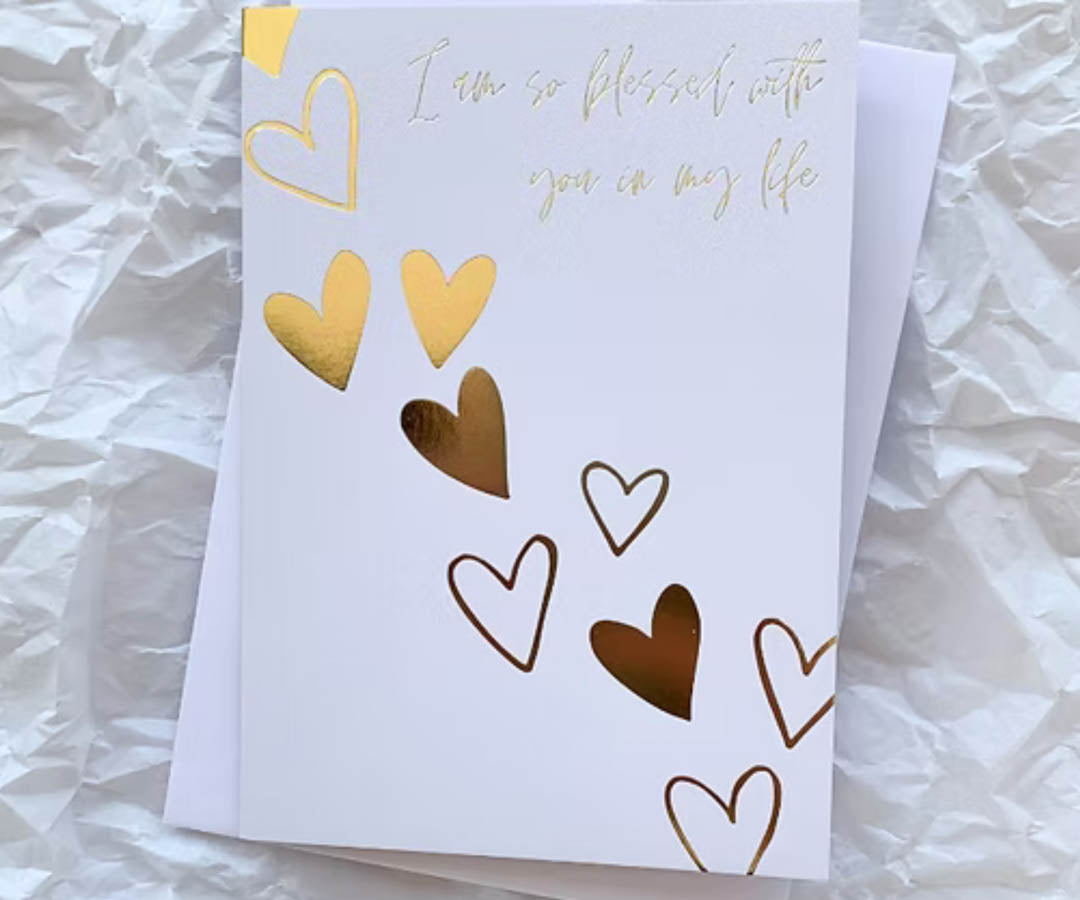 I am so blessed with
you in my life